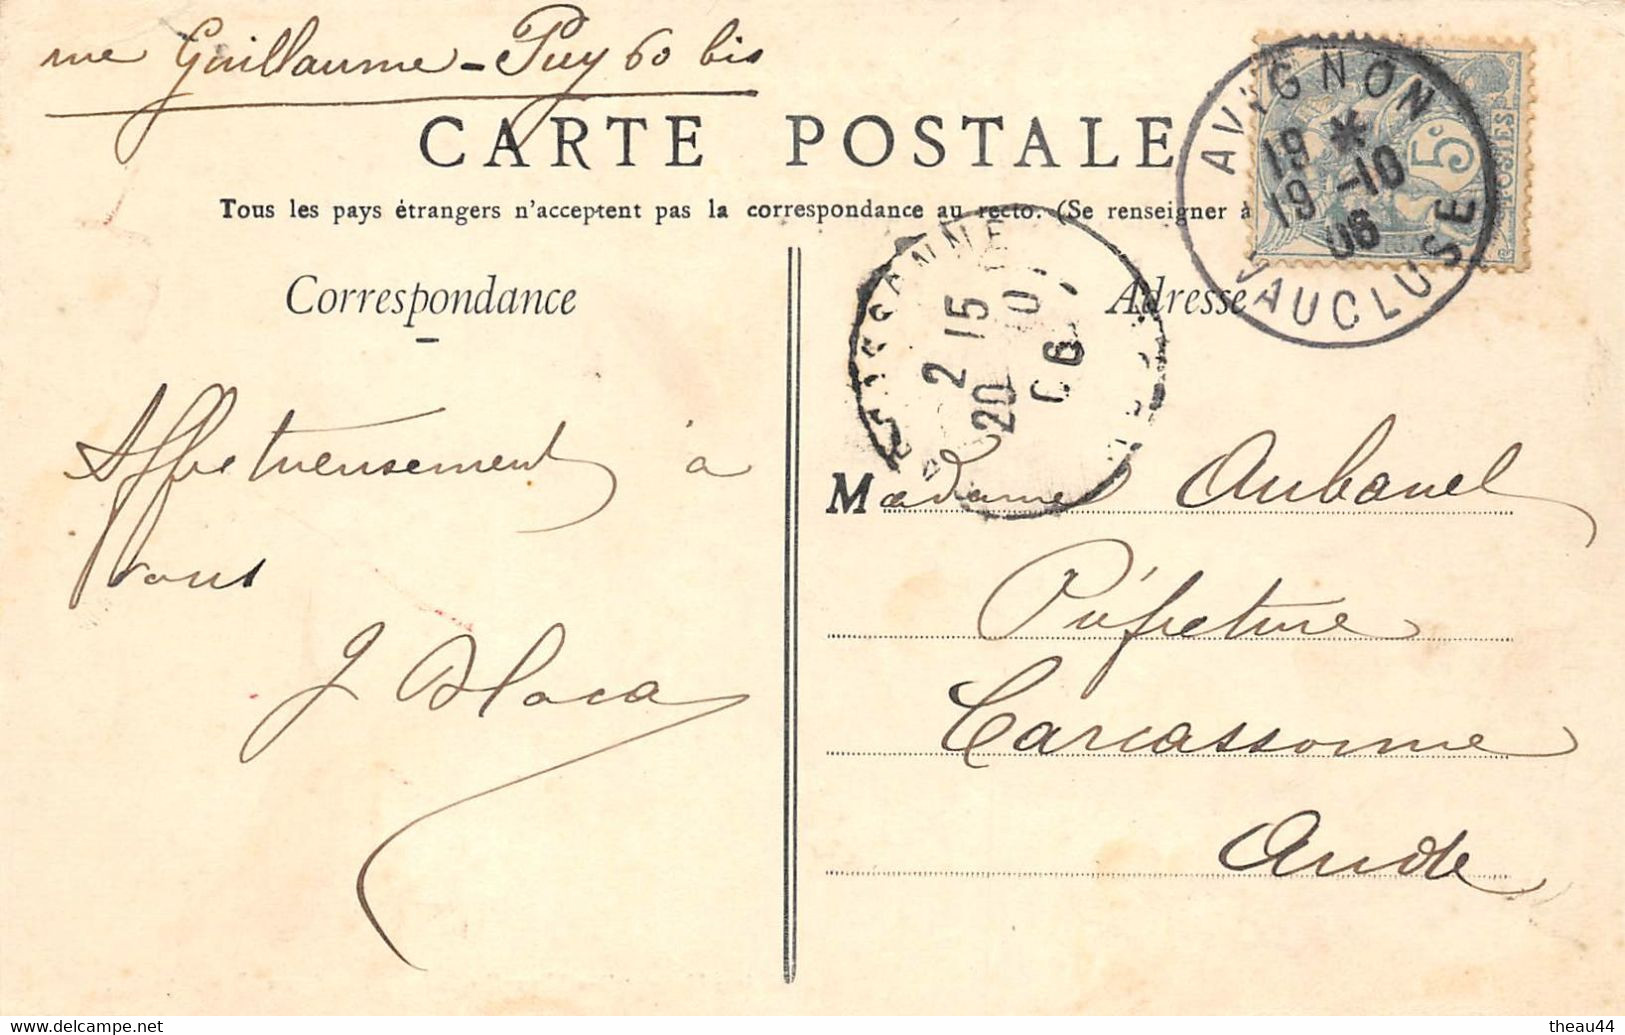 rue Guillaume-Puy 60 bis
CARTE POSTALE
Tous les pays étrangers n'acceptent pas la correspondance au recto. (Se renseigner à
Correspondance
Adresse
AVIGNON
19 *
19 -10
06
VAUCLUSE
5c
POSTES
2 15
20
06
Affectueusement à
vous
Madame Aubanel
Préfecture
Carcassonne
Aude
theau44